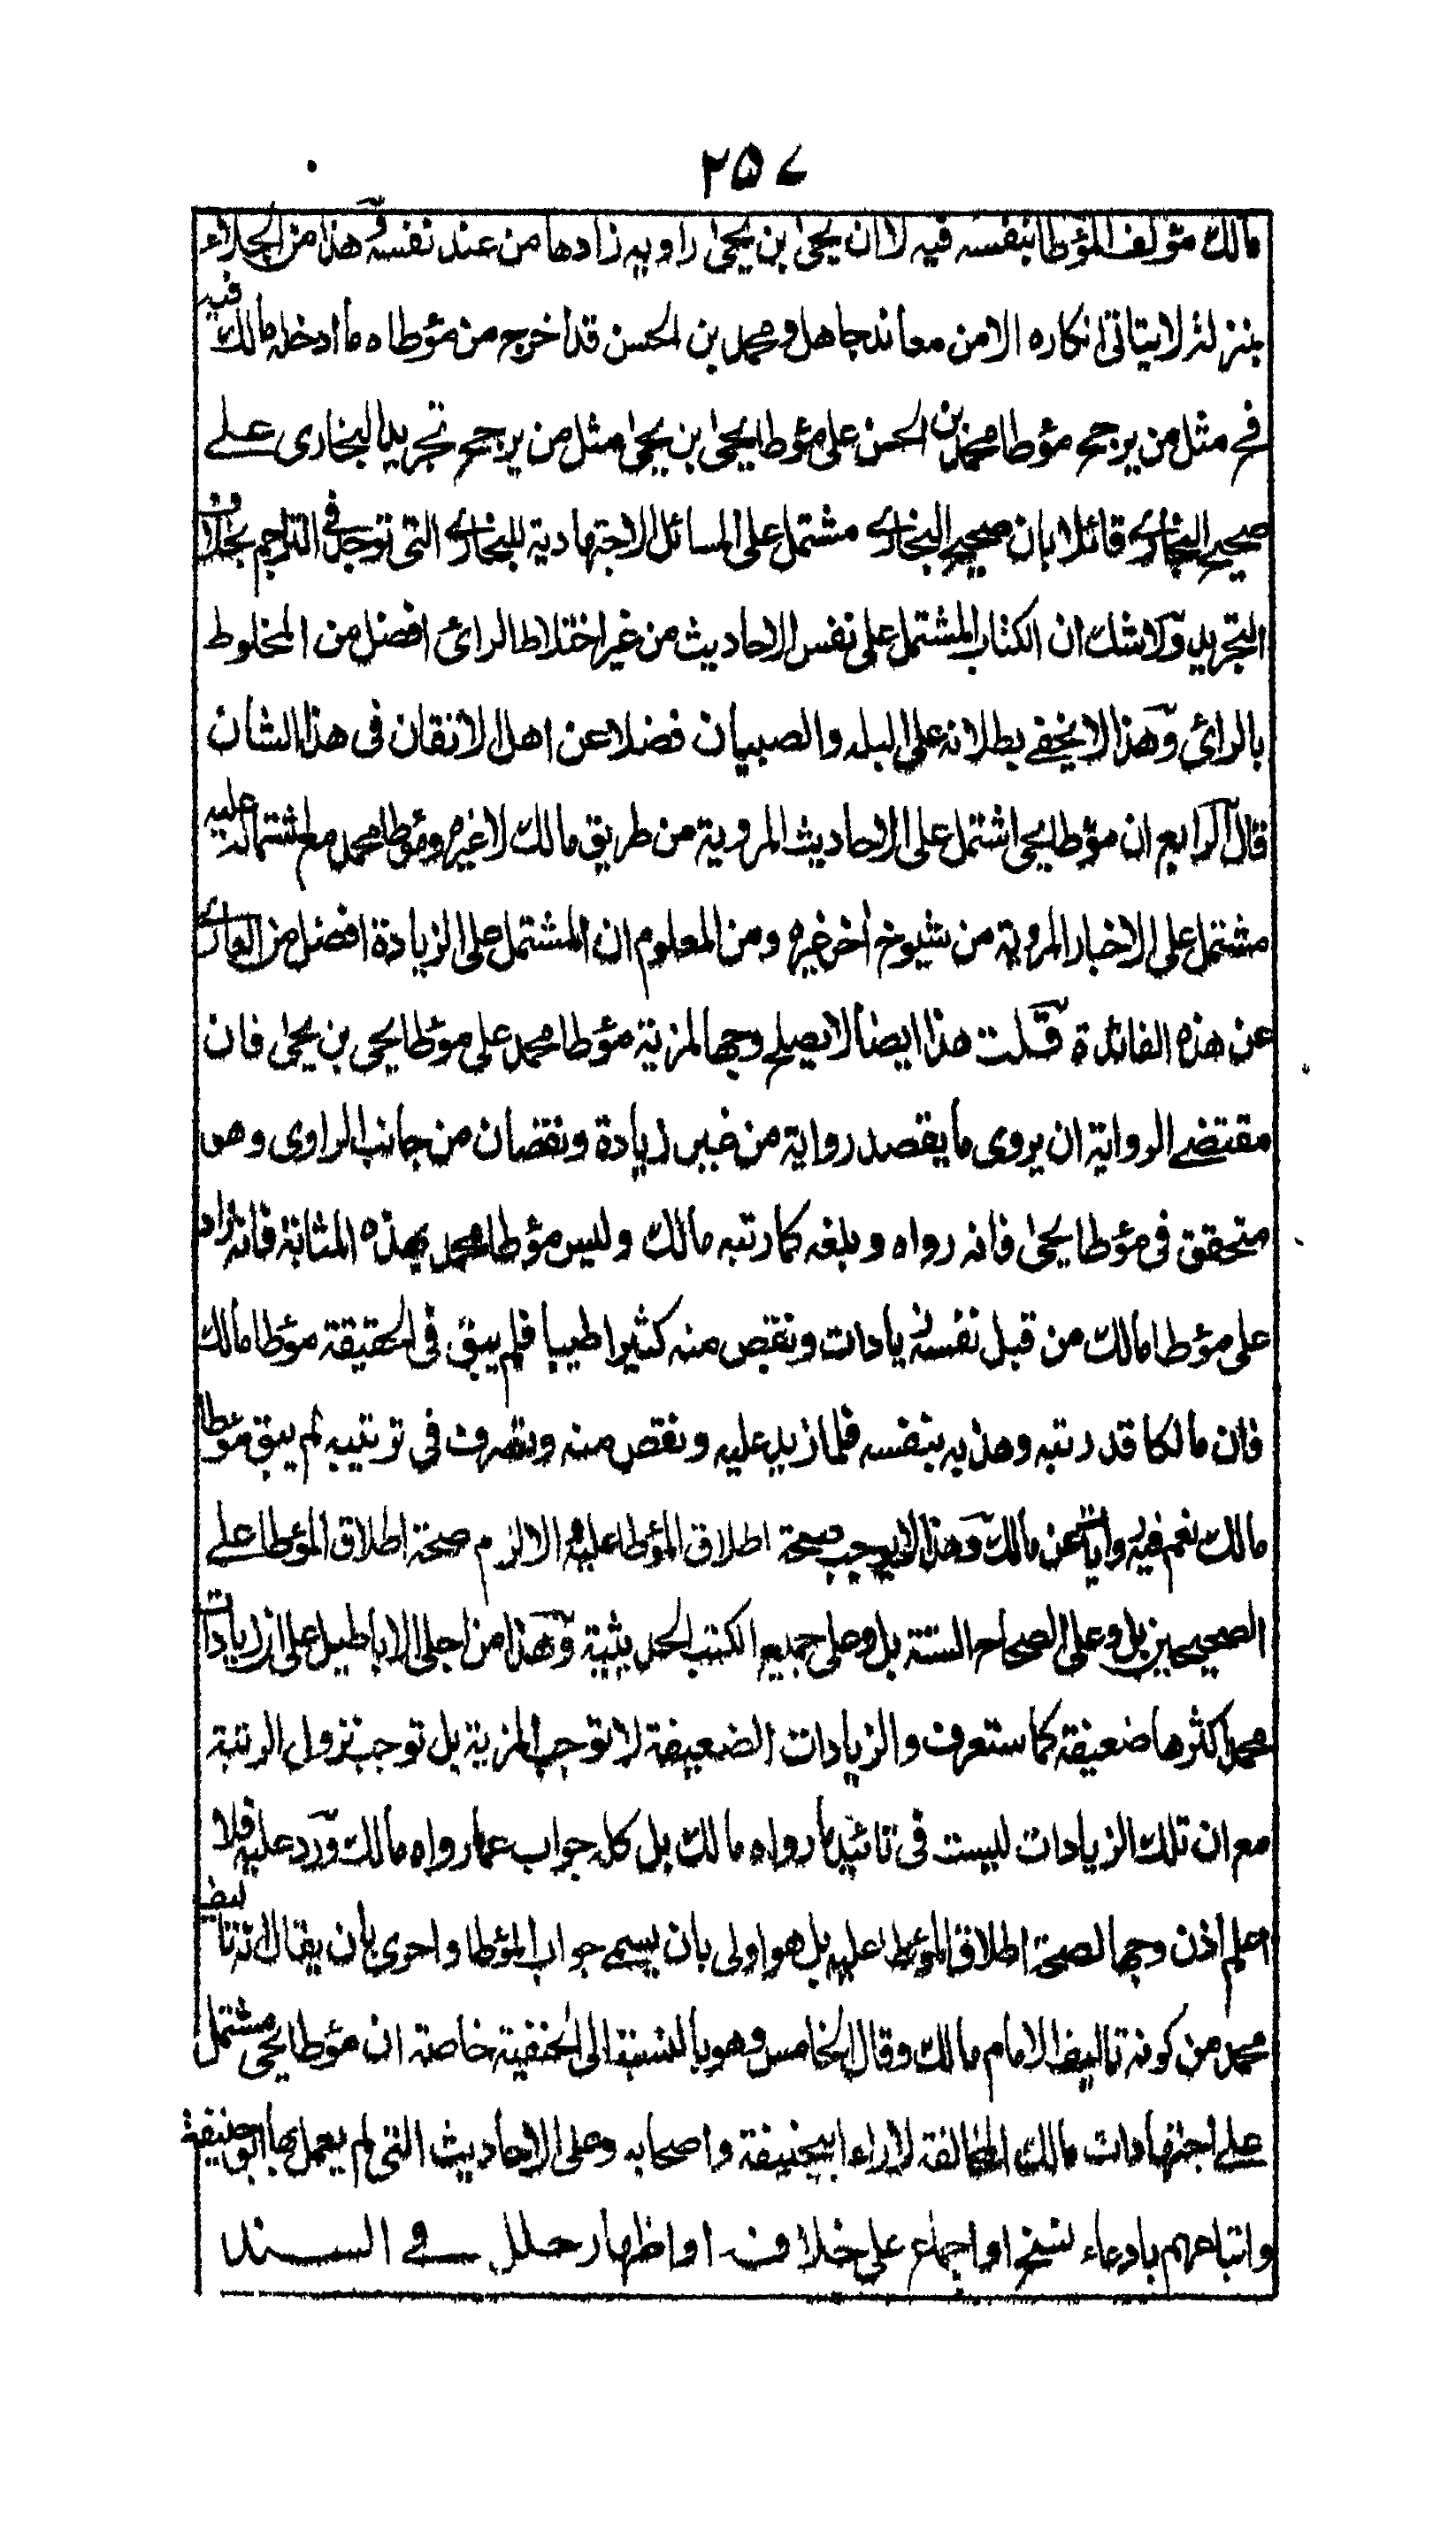 ٢٥٧
مالك مؤلف المؤطا بنفسه فيه لا ان يحيى بن يحيى راويه زادها من عند نفسه وهذا من الجلاء
بمنزلة لا يتاتى انكاره الا من معاند جاهل ومحمد بن الحسن قد اخرج من مؤطاه ما ادخله مالك فيه
في مثل من يرجح مؤطا محمد بن الحسن على مؤطا يحيى بن يحيى مثل من يرجح تجريد البخارى على
صحيح البخارى قائلا بان صحيح البخارى مشتمل على المسائل الاجتهادية للبخارى التى توجد فى التراجم بخلاف
التجريد ولا شك ان الكتاب المشتمل على نفس الاحاديث من غير اختلاط الرائ افضل من المخلوط
بالرائ وهذا لا يخفى بطلانه على البله والصبيان فضلا عن اهل الاتقان فى هذا الشان
قال الرابع ان مؤطا يحيى اشتمل على الاحاديث المروية من طريق مالك لا غيره ومؤطا محمد مع اشتماله عليه
مشتمل على الاخبار المروية من شيوخ اخر غيره ومن المعلوم ان المشتمل على الزيادة افضل من العارى
عن هذه الفائدة قلت هذا ايضا لا يصلح وجها لمزية مؤطا محمد على مؤطا يحيى بن يحيى فان
مقتضى الرواية ان يروى ما يقصد رواية من غير زيادة ونقصان من جانب الراوى وهو
متحقق فى مؤطا يحيى فانه رواه وبلغه كما رتبه مالك وليس مؤطا محمد بهذه المثابة فانه زاد
على مؤطا مالك من قبل نفسه زيادات ونقص منه كثيرا طيبا فلم يبق فى الحقيقة مؤطا مالك
فان مالكا قد رتبه وهذبه بنفسه فلما زيد عليه ونقص منه وتصرف فى ترتيبه لم يبق مؤطا
مالك نعم فيه روايات عن مالك وهذا لا يوجب صحة اطلاق المؤطا عليه والا لزم صحة اطلاق المؤطا على
الصحيحين بل وعلى الصحاح الستة بل وعلى جميع الكتب الحديثية وهذا من اجلى الاباطيل على ان زيادات
محمد اكثرها ضعيفة كما ستعرف والزيادات الضعيفة لا توجب المزية بل توجب نزول الرتبة
مع ان تلك الزيادات ليست فى تائيد ما رواه مالك بل كله جواب عما رواه مالك ورد عليه فلا
اعلم اذن وجها لصحة اطلاق المؤطا عليه بل هو اولى بان يسمى جواب المؤطا واحرى بان يقال انه تاليف
محمد من كونه تاليف الامام مالك وقال الخامس وهو بالنسبة الى الحنفية خاصة ان مؤطا يحيى مشتمل
على اجتهادات مالك المخالفة لاراء ابيحنيفة واصحابه وعلى الاحاديث التى لم يعمل بها ابو حنيفة
واتباعهم بادعاء نسخ او اجماع على خلاف او اظهار خلل في السند